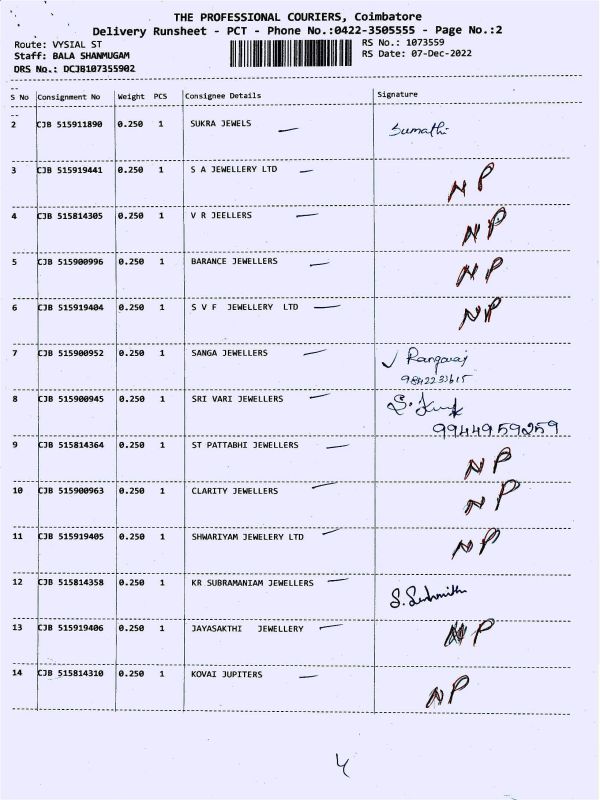 THE PROFESSIONAL COURIERS, Coimbatore
Delivery Runsheet - PCT - Phone No.:0422-3505555 - Page No.:2
Route: VYSIAL ST RS No.: 1073559
Staff: BALA SHANMUGAM RS Date: 07-Dec-2022
DRS No.: DCJB107355902
S No Consignment No Weight PCS Consignee Details Signature
2 CJB 515911890 0.250 1 SUKRA JEWELS Sumathi
3 CJB 515919441 0.250 1 S A JEWELLERY LTD NP
4 CJB 515814305 0.250 1 V R JEELLERS NP
5 CJB 515900996 0.250 1 BARANCE JEWELLERS NP
6 CJB 515919404 0.250 1 S V F JEWELLERY LTD NP
7 CJB 515900952 0.250 1 SANGA JEWELLERS Rangaraj
8 CJB 515900945 0.250 1 SRI VARI JEWELLERS S.
9944959259
9 CJB 515814364 0.250 1 ST PATTABHI JEWELLERS NP
10 CJB 515900963 0.250 1 CLARITY JEWELLERS NP
11 CJB 515919405 0.250 1 SHWARIYAM JEWELERY LTD NP
12 CJB 515814358 0.250 1 KR SUBRAMANIAM JEWELLERS S.
13 CJB 515919406 0.250 1 JAYASAKTHI JEWELLERY NP
14 CJB 515814310 0.250 1 KOVAI JUPITERS NP
4